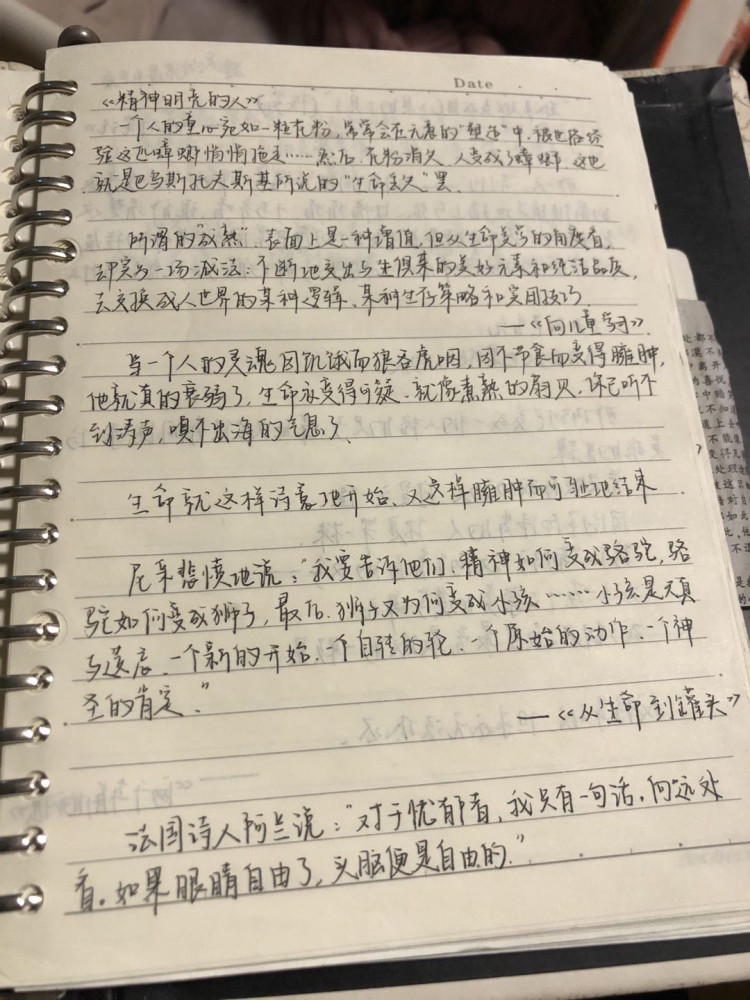 Date
《精神明亮的人》
一个人的童心宛如一粒花粉,常常会在无意的"塑造"中,被世俗经
验这匹蟑螂悄悄拖走……然后,花粉消失,人变成了蟑螂.这也
就是巴乌斯托夫斯基所说的"生命丢失"罢.
所谓的"成熟",表面上是一种增值,但从生命美学的角度看,
却实为一场减法:不断地交出与生俱来的美好元素和纯洁品质,
去交换成人世界的某种逻辑、某种生存策略和实用技巧.
——《向儿童学习》.
当一个人的灵魂因饥饿而狼吞虎咽,因不节食而变得臃肿,
他就真的衰弱了,生命亦变得可疑.就像煮熟的扇贝,你已听不
到涛声,嗅不出海的气息了.
生命就这样诗意地开始、又这样臃肿而可耻地结束
尼采悲愤地说:"我要告诉他们,精神如何变成骆驼,骆
驼如何变成狮子,最后,狮子又为何变成小孩……小孩是天真
与遗忘.一个新的开始.一个自转的轮.一个原始的动作.一个神
圣的肯定."
——《从生命到罐头》
法国诗人阿兰说:"对于忧郁者,我只有一句话,向远处
看。如果眼睛自由了,头脑便是自由的."